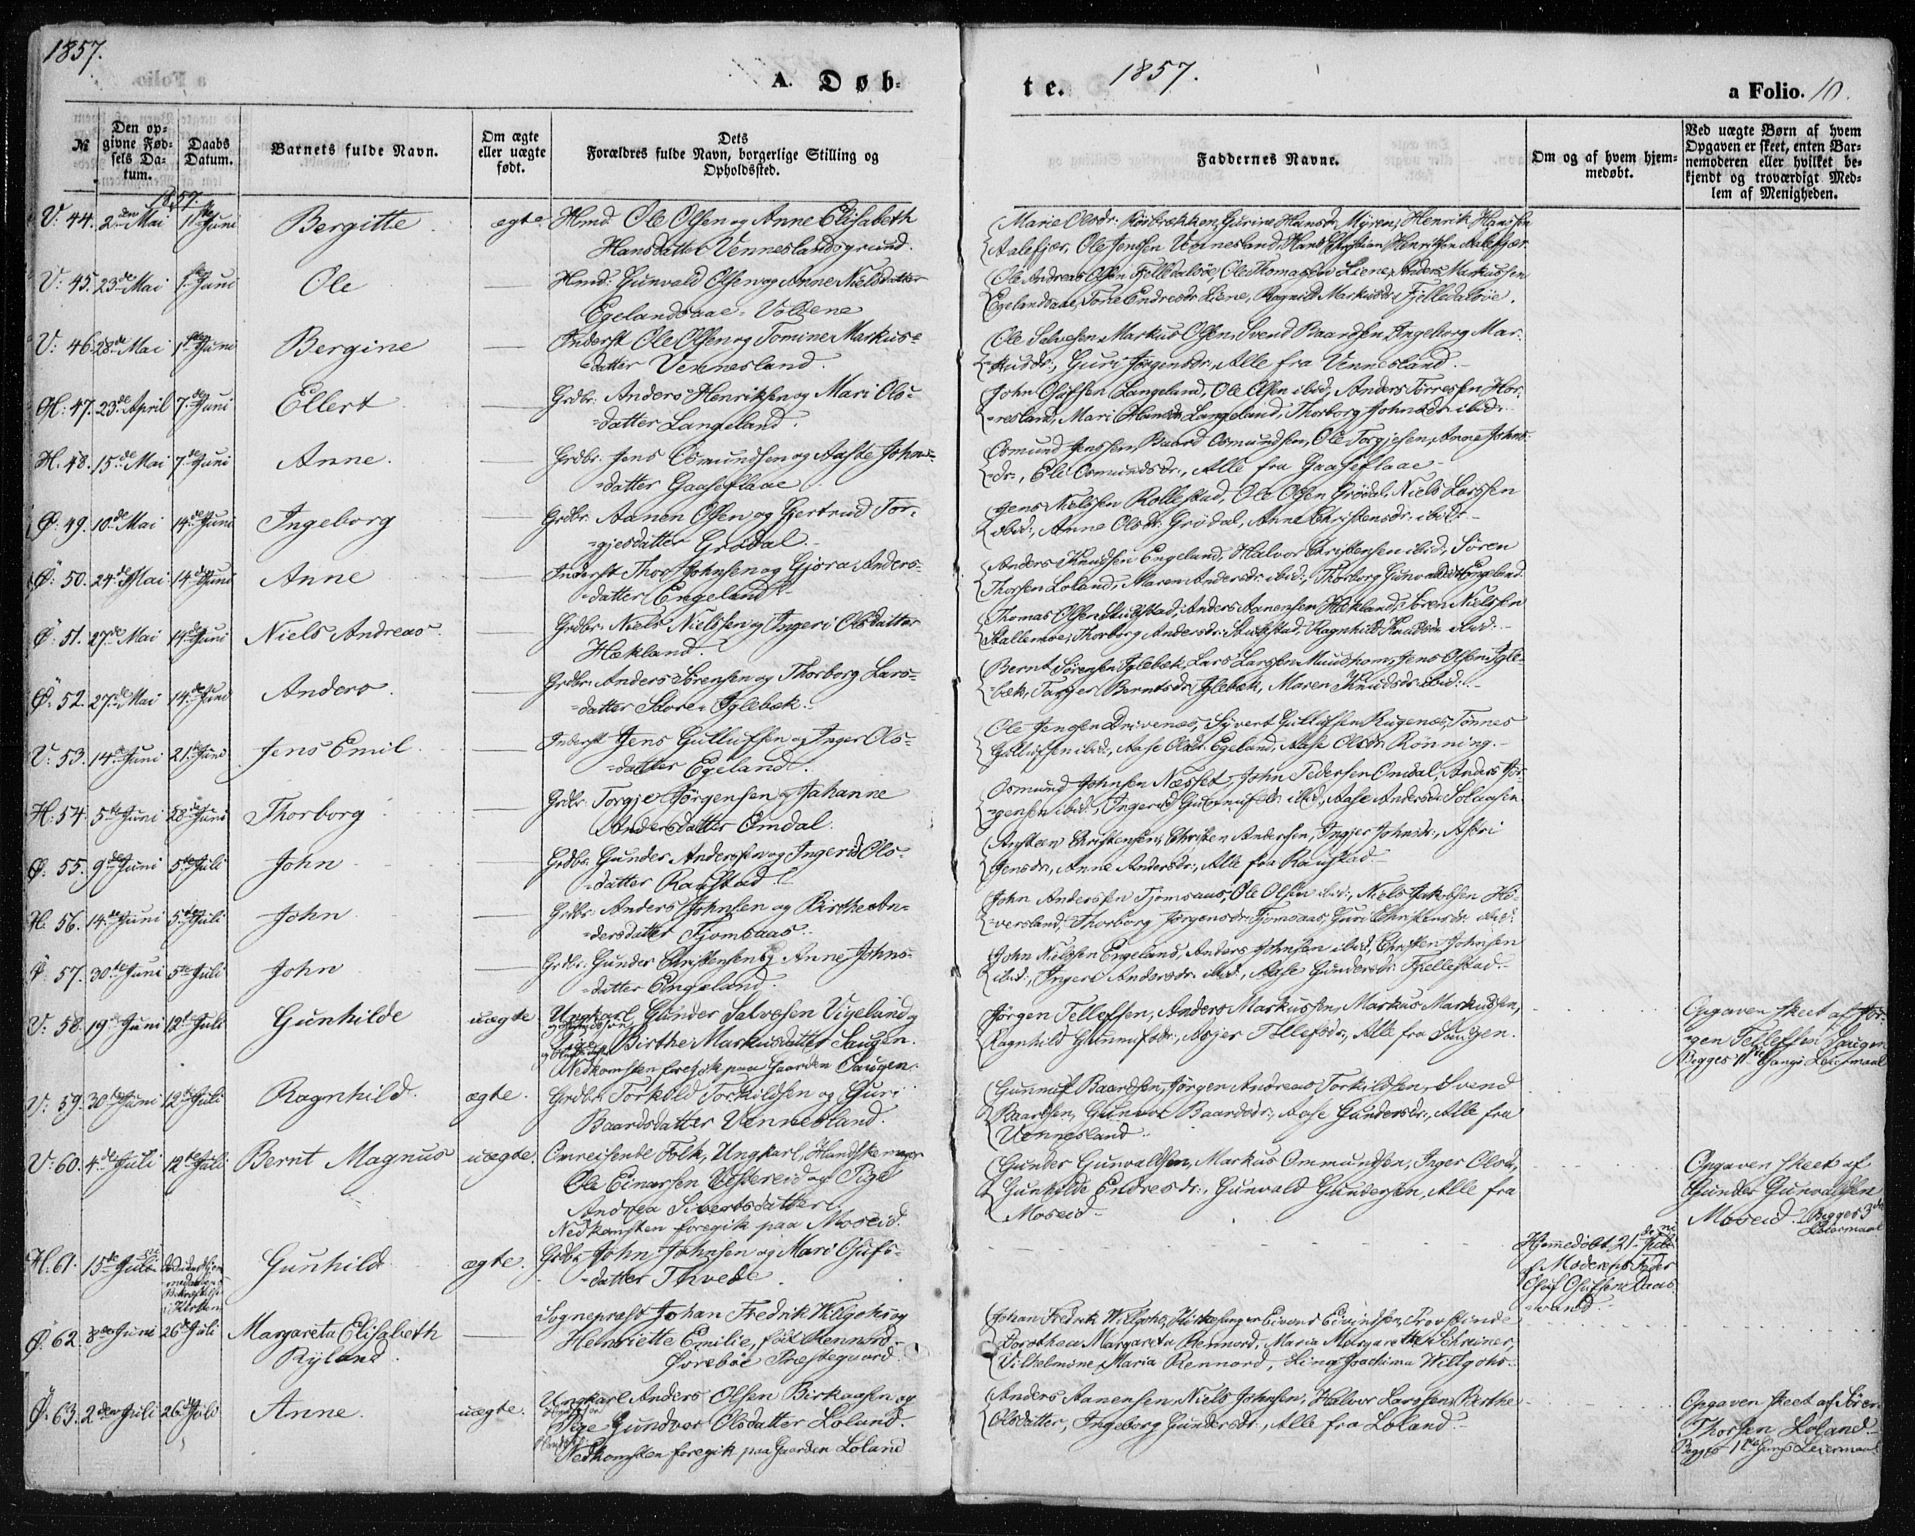 1857.
A. Døb-
te.
1857.
a Folio. 10.
№
Den op-
givne Fød-
sels Da-
tum.
Daabs
Datum.
Barnets fulde Navn.
Om ægte
eller uægte
født.
Dets
Forældres fulde Navn, borgerlige Stilling og
Opholdssted.
Faddernes Navne.
Om og af hvem hjem-
medøbt.
Ved uægte Børn af hvem
Opgaven er skeet, enten Bar-
nemoderen eller hvilket be-
kjendt og troværdigt Med-
lem af Menigheden.
1857.
V. 44. 2den Mai 1ste Juni Bergitte ægte Hmd. Ole Olsen og Anne Elisabeth
Hansdatter Venneslandsgrund.
Marie Olsdr. Gurine Hansdr. Myren, Henrik Hansen
Aalefjær, Ole Jensen Vennesland, Hans Christian Henriksen Aalefjær
V. 45. 23de Mai 1ste Juni Ole — Hmd: Gunvald Olsen og Anne Nielsdatter
Egelandsaae Voldene
Ole Andreas Olsen Fjelledalsøe, Ole Thomassen Liene, Anders Markussen
Egelandsaae, Tone Endresdr. Liene, Ragnild Markusdr. Fjelledaløve.
V: 46. 28de Mai 1ste Juni Bergine — Inderst Ole Olsen og Tomine Markus-
datter Vennesland.
Ole Salvesen, Markus Olsen, Svend Baardsen, Ingeborg Mar-
kusdr., Guri Jørgensdr., Alle fra Vennesland
H: 47. 23de April 7de Juni Ellert — Grdbr. Anders Henriksen og Mari Ols-
datter Langeland.
John Olufsen Langeland, Ole Olsen ibid, Anders Torresen Hor-
resland, Mari Hansdr. Langeland, Thorborg Johnsdr. ibid.
H. 48. 15de Mai 7de Juni Anne. — Grdbr. Jens Osmundsen og Aaste Johns-
datter Gaaseflaae
Osmund Jenssen, Baard Osmundsen, Ole Torgjesen, Anne Johns-
dr., Eli Osmundsdr., Alle fra Gaaseflaae
Ø: 49. 10de Mai 14de Juni Ingeborg — Grdbr. Aanen Olsen og Gjertrud Tor-
gjesdatter Grødal.
Jens Nielssen Rollestad, Ole Olsen Grødal, Niels Larssen
ibid:, Anne Olsdr. Grødal, Anne Christensdr. ibid
Ø: 50. 24de Mai 14de Juni Anne — Inderst Thor Johnsen og Gjøra Anders-
datter Engeland
Anders Knudsen Engeland, Halvor Christensen ibid, Søren
Thorsen Loland, Maren Andersdr. ibid., Thorborg Gunvaldsdr. Engeland
Ø. 51. 27de Mai 14de Juni Niels Andreas. — Grdbr. Niels Nielssen og Ingeri Olsdatter
Hækland.
Thomas Olsen Stulstad, Anders Aanensen Hækland, Søren Nielssen
Stallemoe, Thorborg Andersdr. Stulstad, Ragnhild Knudsdr. ibid.
Ø. 52. 27de Mai 14de Juni Anders. — Grdbr. Anders Sørensen og Thorborg Lars-
datter Store Iglebæk.
Bernt Sørensen Iglebæk, Lars Larssen Muushom, Jens Olsen Igle-
bæk, Targjer Berntsdr. Iglebæk, Maren Knudsdr. ibid.
V: 53. 14de Juni 21de Juni Jens Emil — Inderst Jens Gullufsen og Inger Ols-
datter Egeland.
Ole Jenssen Drivenæs, Syvert Gullufsen Rugenæs, Tønnes
Gullufsen ibid., Aase Olsdr. Egeland, Aase Olsdr. Rønning.
H. 54. 5te Juni 28de Juni Thorborg — Grdbr. Torgje Jørgensen og Jahanne
Andersdatter Omdal.
Osmund Johnsen Næsset, John Pedersen Omdal, Anders Jør-
gensen ibid., Ingerid ibid., Aase Andersdr. Solaasen
Ø. 55. 9de Juni 5te Juli John — Grdbr. Gunder Andersen og Ingerid Ols-
datter Raustad.
Ansteen Christensen, Christen Andersen, Ingjer Johnsdr., Asberi
Jensdr., Anne Andersdr., Alle fra Raustad
H. 56. 14de Juni 5te Juli John — Grdbr. Anders Johnsen og Birthe An-
dersdatter Tjomsaas.
John Andersen Tjomsaas, Ole Olsen ibid., Niels Jakobsen Hø-
versland, Thorborg Jørgensdr. Tjomsaas, Guri Christensdr. ibid.
Ø. 57. 30te Juni 5te Juli John — Grdbr. Gunder Christensen og Anne Johns-
datter Engeland.
John Nielssen Engeland, Anders Johnsen ibid., Christen Johnsen
ibid., Ingeri Andersdr. ibid., Aase Gundersdr. Fjellestad.
V. 58. 19de Juni 12te Juli Gunhilde uægte Ungkarl Gunder Salvesen Vigeland og
Pige Birthe Markusdatter Saugen.
Nedkomsten foregik paa Gaarden Saugen.
Jørgen Tellefsen, Anders Markussen, Markus Markussen,
Ragnhild Gunnufsdr., Asgjer Tellefsdr., Alle fra Saugen.
Opgaven skeet af Jør-
gen Tellefsen Saugen
Begges 1ste Gangs Leiermaal
V: 59. 30te Juni 12te Juli Ragnhild. ægte. Grdbr. Torkild Torkildsen og Guri
Baardsdatter Vennesland.
Gunnuf Baardsen, Jørgen Andreas Torkildsen, Svend
Baardsen, Gunvor Baardsdr., Aase Gundersdr., Alle fra
Vennesland.
V: 60. 4de Juli 12te Juli Bernt Magnus uægte. Omreisende Folk, Ungkarl, Handskemager
Ole Einarsen Vestereid og Pige
Andrea Sivertsdatter.
Nedkomsten foregik paa Moseid.
Gunder Gunvaldsen, Markus Ommundsen, Inger Olsdr.,
Gunhilde Endresdr., Gunvald Gundersen, Alle fra
Moseid
Opgaven skeet af
Gunder Gunvaldsen
Moseid. Begges 3die
Leiermaal
H. 61. 15de Juni Gunhild ægte. Grdbr. John Johnsen og Mari Olufs-
datter Thvede.
Hjemmedøbt 21de Juni
af Moderens Fader
Oluf Olufsen Raas-
vand.
Ø. 62. 8de Juni 26de Juli Margareta Elisabeth
Ryland. — Sognepræst Johan Fredrik Willgohs og
Henriette Emilie, født Rennord
Øvrebøe Præstegaard.
Johan Fredrik Willgohs, Kirkesanger Eivind Eivindsen, Provstinde
Dorothea Margareta Rennord, Maria Margaretha Schreiner,
Vilhelmine Maria Rennord, Lina Joachima Willgohs.
Ø. 63. 2den Juli 26de Juli Anne. uægte. Ungkarl Anders Olsen Birkaasen og
Pige Gundvor Olsdatter Loland.
Nedkomsten foregik paa Gaarden Loland
Anders Aanensen, Niels Johnsen, Halvor Larssen, Berthe
Olsdatter, Ingeborg Gundersdr., Alle fra Loland.
Opgaven skeet af Søren
Thorsen Loland.
Begges 1ste Gangs Leiermaal